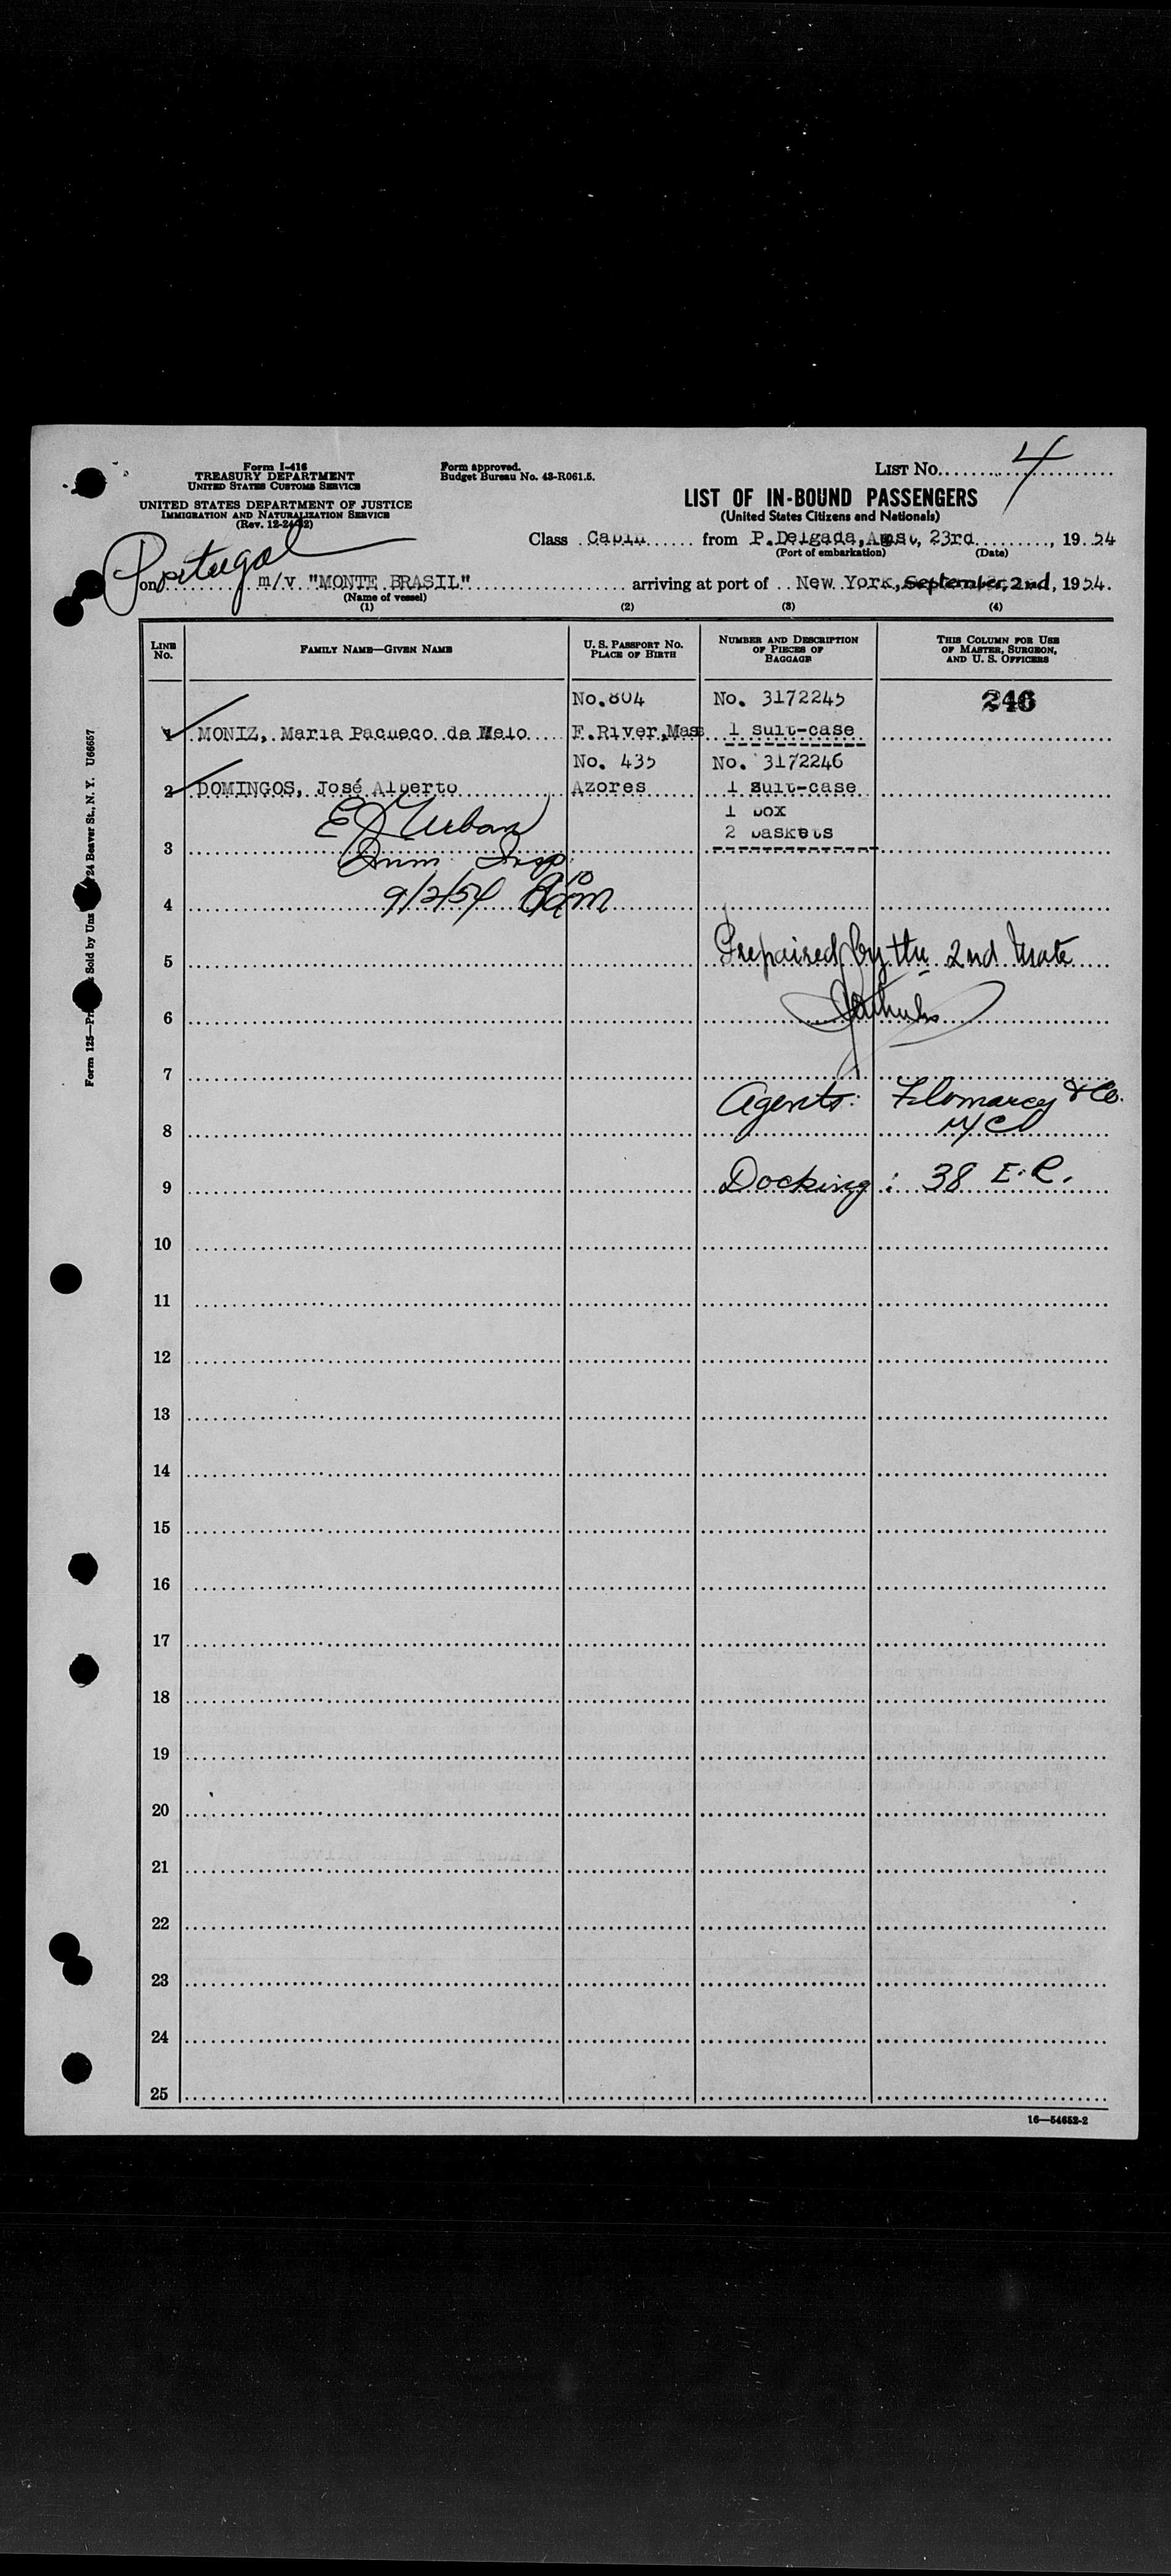 Form I-416
TREASURY DEPARTMENT
UNITED STATES CUSTOMS SERVICE
UNITED STATES DEPARTMENT OF JUSTICE
IMMIGRATION AND NATURALIZATION SERVICE
Form approved.
Budget Bureau No. 43-R061.5.
LIST No. 4
LIST OF IN-BOUND PASSENGERS
(United States Citizens and Nationals)
Class Cabin from P.Delgada, 23rd, 1954
(Port of embarkation) (Date)
Portugal
on m/v "MONTE BRASIL" arriving at port of New York, September, 2nd, 1954.
(Name of vessel)
(1) (2) (3) (4)
LINE No. FAMILY NAME—GIVEN NAME U. S. PASSPORT No. PLACE OF BIRTH NUMBER AND DESCRIPTION OF PIECES OF BAGGAGE THIS COLUMN FOR USE OF MASTER, SURGEON, AND U. S. OFFICERS
No.804 No. 3172245 246
1 MONIZ, Maria Pacheco de Melo F.River,Mass 1 suit-case
No. 435 No. 3172246
2 DOMINGOS, José Alberto Azores 1 suit-case
1 box
2 baskets
E J Urban
3 Imm. Insp.
4 9/2/54
5 Prepaired by the 2nd Mate
6
7
Agents: & Co.
8 NYC
9 Docking: 38 E.R.
10
11
12
13
14
15
16
17
18
19
20
21
22
23
24
25
16—54652-2
Sold by 24 Beaver St., N. Y. U66657
Form 125